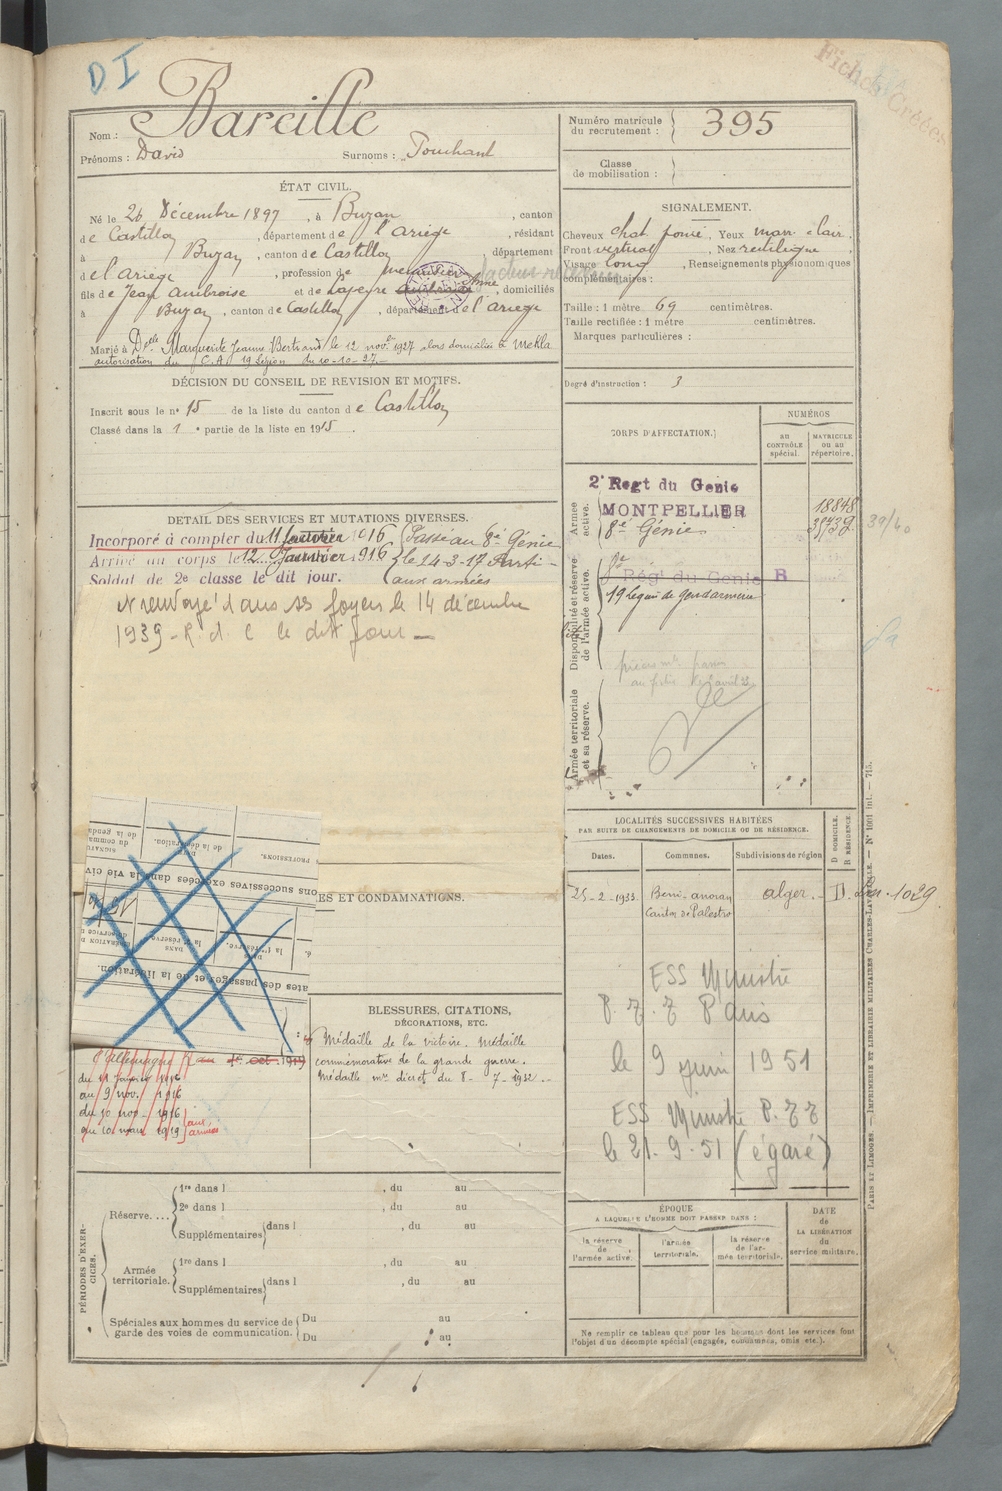 D I
Fiches Créées
Nom : Bareille
Prénoms : David Surnoms : Touchant
Numéro matricule du recrutement : 395
Classe de mobilisation :
ÉTAT CIVIL.
Né le 26 Décembre 1897, à Buzan, canton
de Castillon, département de l'Ariège, résidant
à Buzan, canton de Castillon, département
de l'Ariège, profession de menuisier
fils de Jean Ambroise et de Lafeyre Anne, domiciliés
à Buzan, canton de Castillon, département de l'Ariège
Marié à Delle Marguerite Jeanne Bertrand le 12 novbre 1927 alors domiciliée à Mekla
autorisation du C.A 19 Légion du 10-10-27-
SIGNALEMENT.
Cheveux chat. foncé, Yeux marr. clair.
Front vertical, Nez rectiligne
Visage long, Renseignements physionomiques
complémentaires :
Taille : 1 mètre 69 centimètres.
Taille rectifiée : 1 mètre centimètres.
Marques particulières :
Degré d'instruction : 3
DÉCISION DU CONSEIL DE REVISION ET MOTIFS.
Inscrit sous le n° 15 de la liste du canton de Castillon
Classé dans la 1 e partie de la liste en 1915.
CORPS D'AFFECTATION.
NUMÉROS
au CONTRÔLE spécial.
MATRICULE ou au répertoire.
Armée active.
2e Regt du Genie
MONTPELLIER
8e Génie
18848
39/40
Disponibilité et réserve de l'armée active.
8e Régt du Genie R
19 Légion de Gendarmerie
Armée territoriale et sa réserve.
DÉTAIL DES SERVICES ET MUTATIONS DIVERSES.
Incorporé à compter du 11 Janvier 1916
Arrivé au corps le 12 Janvier 1916
Soldat de 2e classe le dit jour.
Passé au 8e Génie
le 24-3-17 Parti
aux armées
et renvoyé dans ses foyers le 14 décembre
1939 - R. d. C le dit jour -
PROFESSIONS.
ons successives exercées dans la vie civ
ates des passages et de la libération.
ES ET CONDAMNATIONS.
BLESSURES, CITATIONS,
DÉCORATIONS, ETC.
Médaille de la victoire. Médaille
commémorative de la grande guerre.
Médaille mre décret du 8-7-1932.-
l'Allemagne
du 11 Janvier 1916
au 9 nov. 1916
du 10 nov. 1916
au 10 mars 1919
aux armées
LOCALITÉS SUCCESSIVES HABITÉES
PAR SUITE DE CHANGEMENTS DE DOMICILE OU DE RÉSIDENCE.
Dates. Communes. Subdivisions de région
D DOMICILE.
R RÉSIDENCE.
25-2-1933 Beni-amran Alger.- D.
Canton de Palestro
ESS Ministre
P. T. T Paris
le 9 juin 1951
ESS Ministre P. T T
le 21.9.51 (égaré)
PÉRIODES D'EXERCICES.
Réserve....
1re dans l , du au
2e dans l , du au
Supplémentaires dans l , du au
Armée territoriale.
1re dans l , du au
Supplémentaires dans l , du au
Spéciales aux hommes du service de garde des voies de communication.
Du au
Du au
ÉPOQUE
A LAQUELLE L'HOMME DOIT PASSER DANS :
la réserve de l'armée active.
l'armée territoriale.
la réserve de l'armée territoriale.
DATE
de
LA LIBÉRATION
du
service militaire.
Ne remplir ce tableau que pour les hommes dont les services font
l'objet d'un décompte spécial (engagés, condamnés, omis etc.).
PARIS ET LIMOGES. — IMPRIMERIE ET LIBRAIRIE MILITAIRES CHARLES-LAVAUZELLE. — N° 1001 int. — 715.